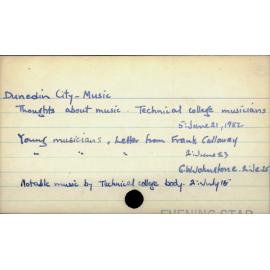 Dunedin City - Music
Thoughts about music. Technical college musicians
S: June 21, 1952
Young musicians. Letter from Frank Callaway
" " " 2: June 23
G.W. Johnstone. 2: Je 25
Notable music by Technical college body. 2: July 15
EVENING STAR